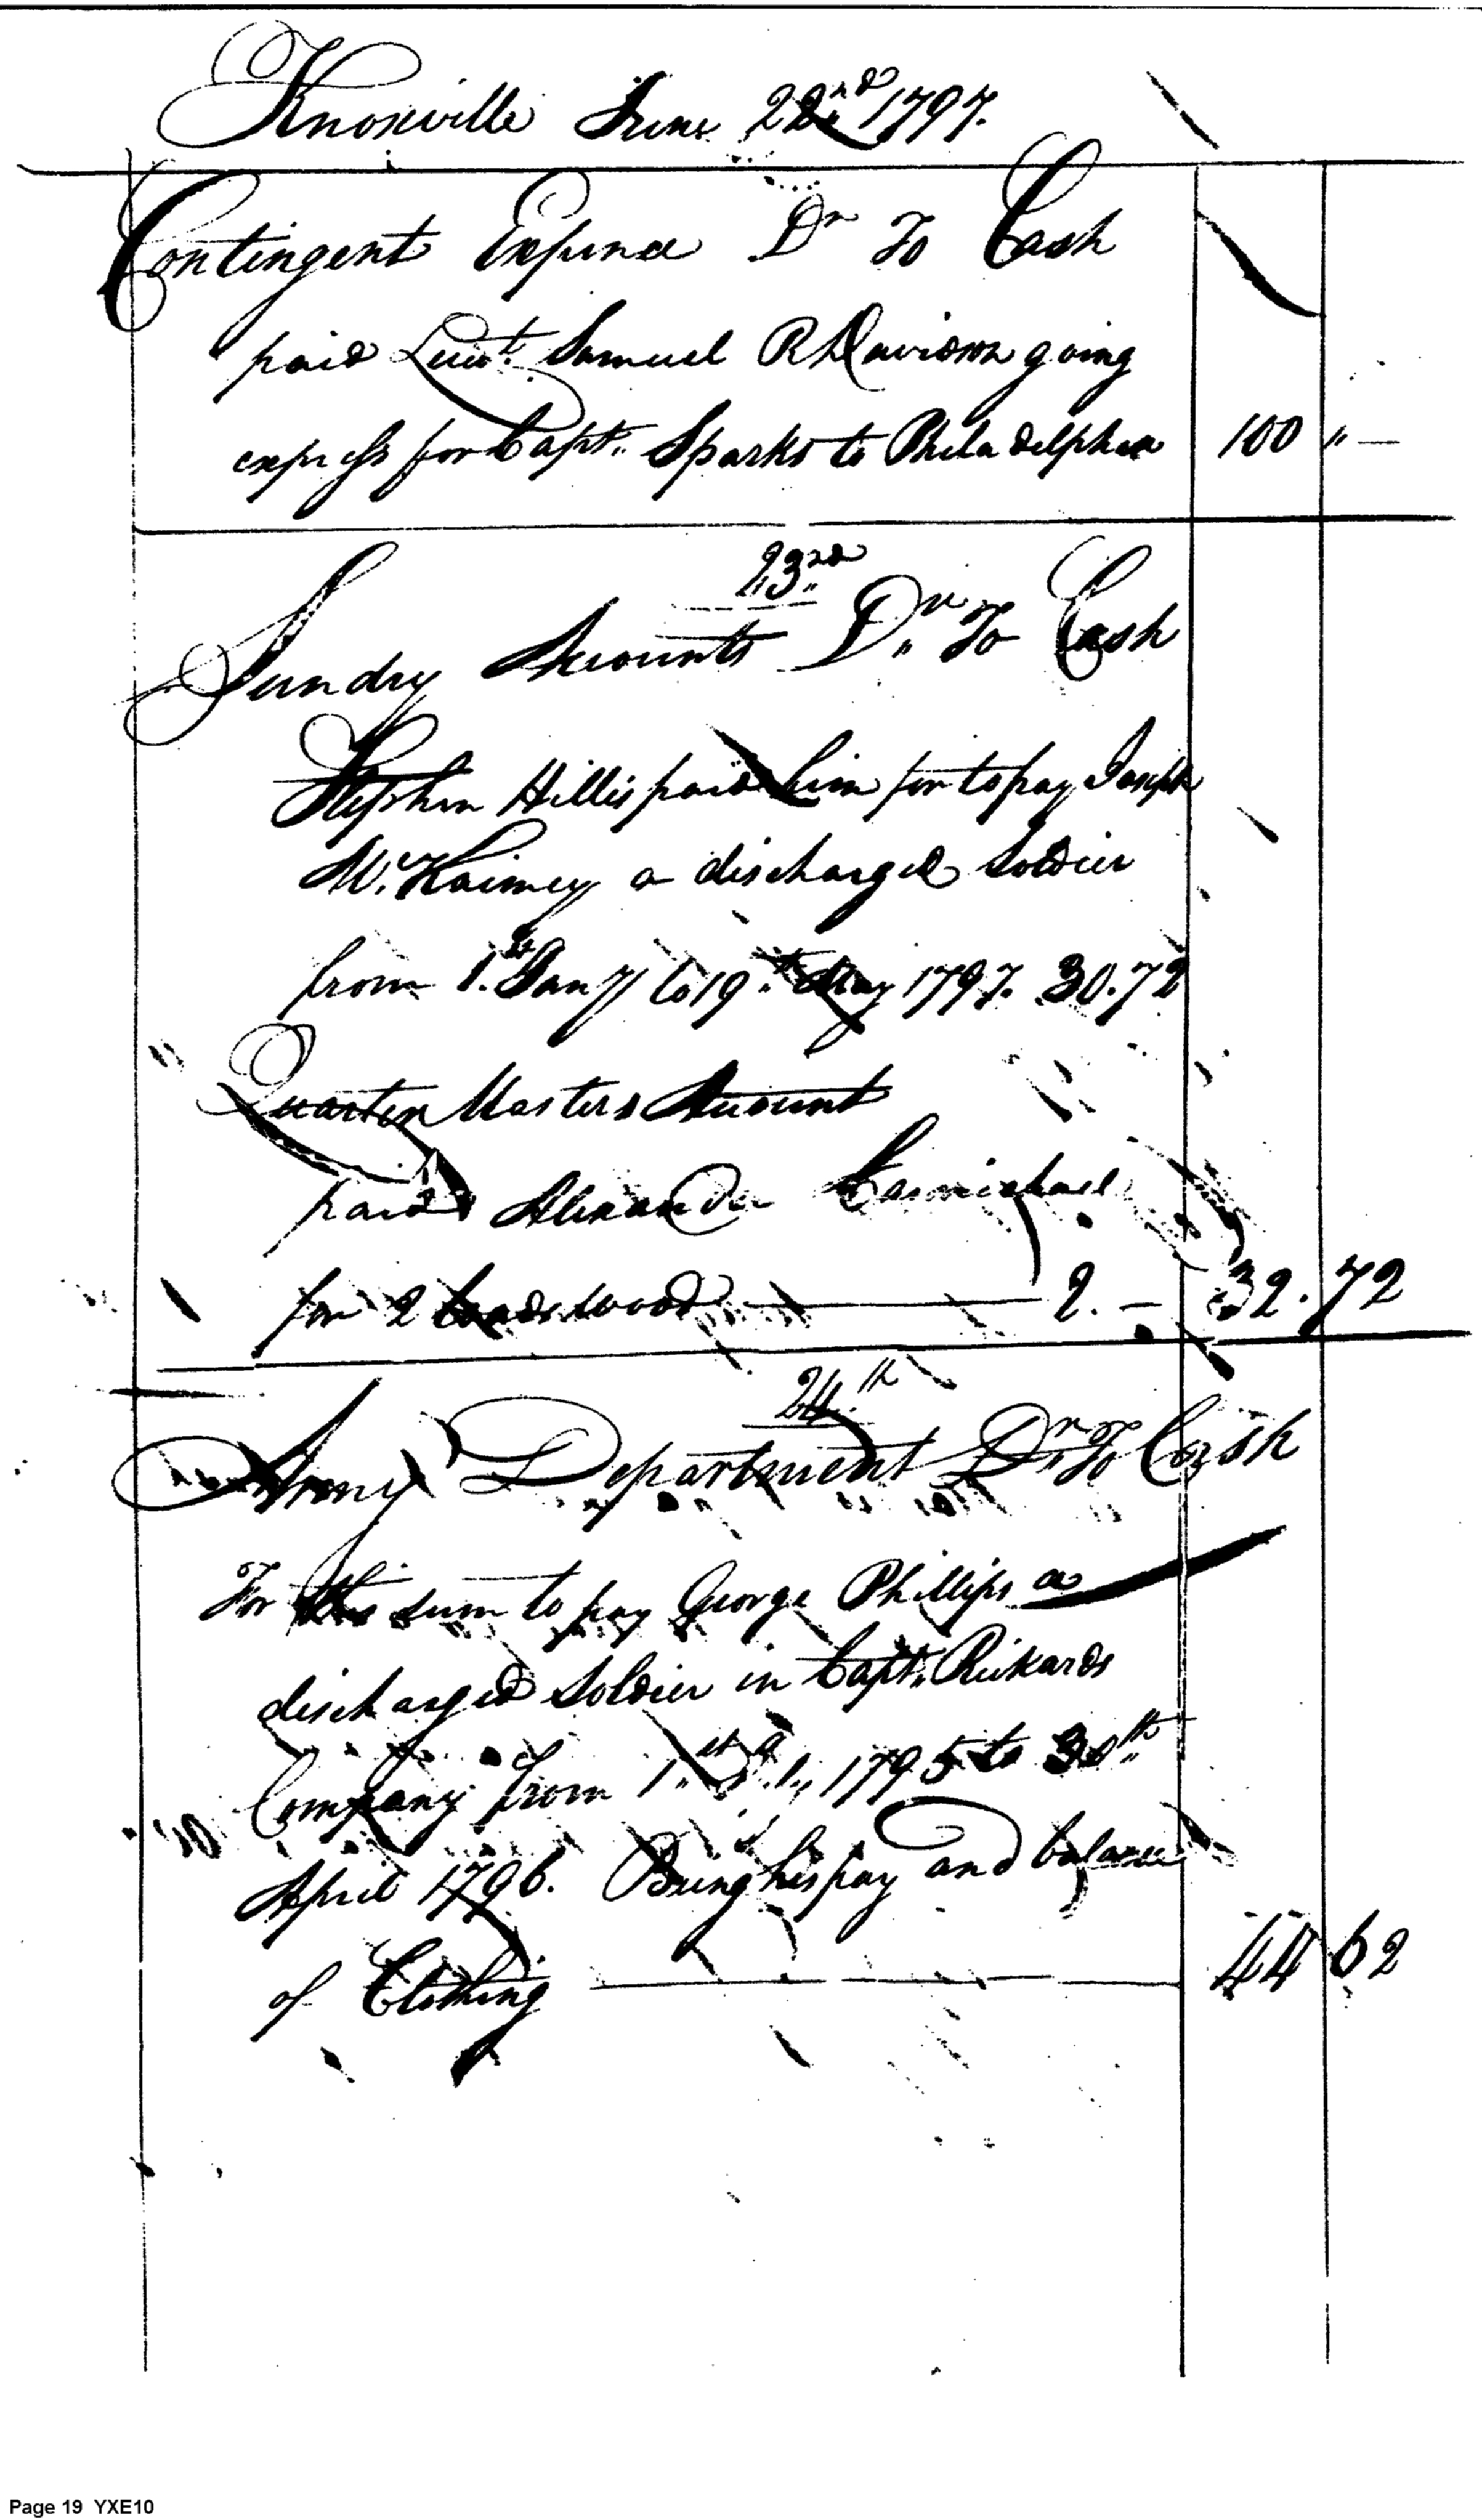 Knoxville June 22nd 1797.
Contingent Expence Dr To Cash
paid Lieut. Samuel R Davidson going
express for Capt. Sparks to Philadelphia 100 " —
23rd
Sundry Accounts Dr. To Cash
Stephen Hillis paid him for to pay Joseph
Mc.Kaimey a discharged Soldier
from 1.st Jany to 19.th May 1797. 30.72
Quarter Masters Account
paid Alexander Carmichael
for 2 wood 2. — 32.72
24th
Army Department Dr. To Cash
For this sum to pay George Phillips a
discharged Soldier in Capt. Rickards
Company from 1.st 1795 to 30th
April 1796. Being his pay and balance
of Clothing 44 62
Page 19 YXE10